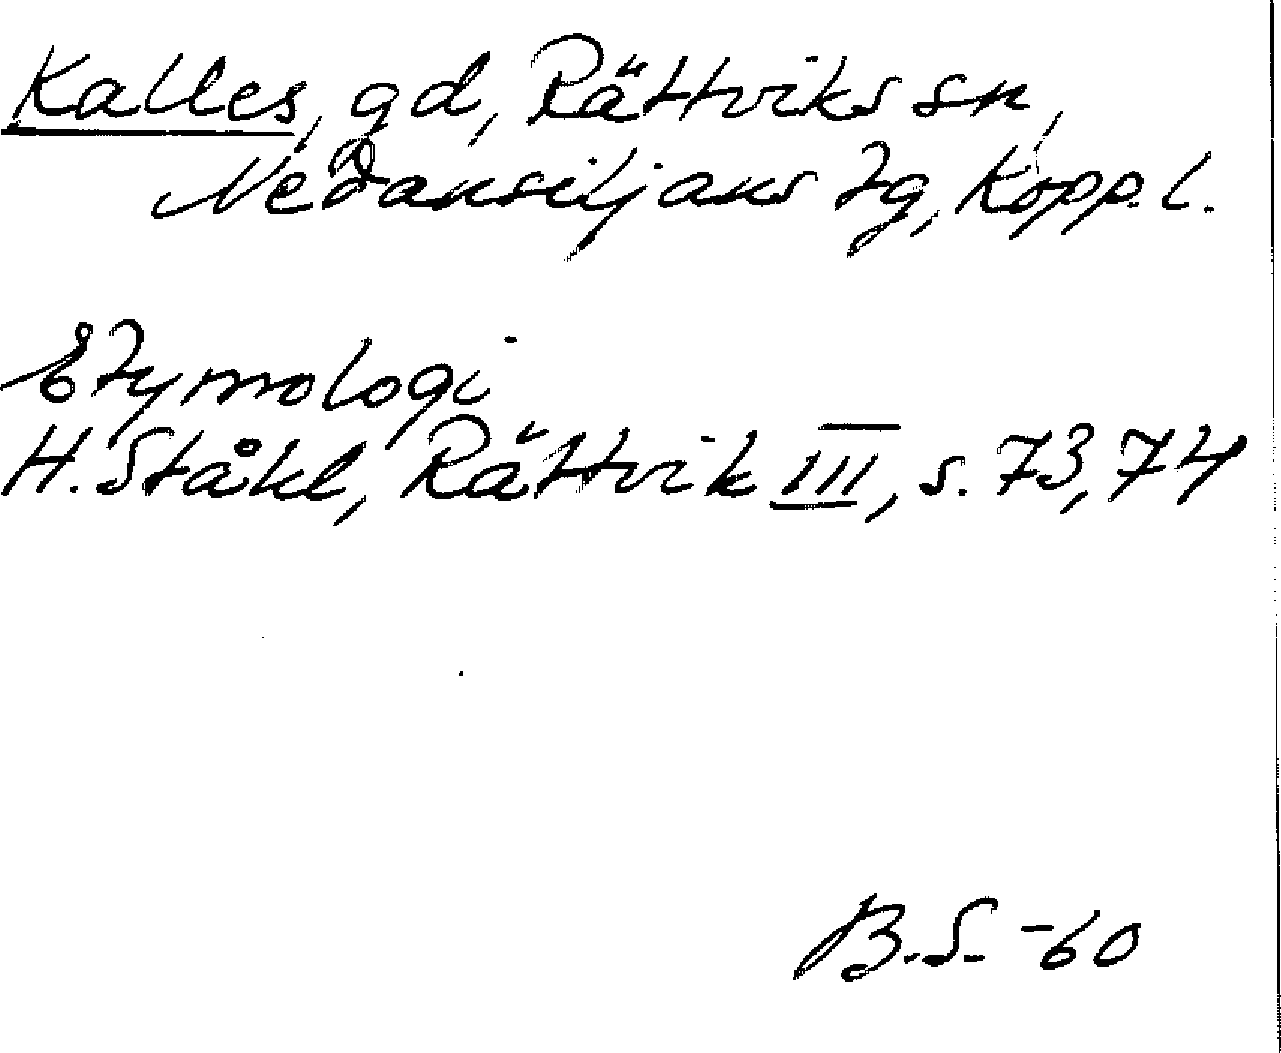 Kalles, gd, Rättviks sn,
Nedansiljans tg, Kopp. l.
Etymologi
H. Ståhl, Rättvik III, s. 73, 74
B.S. -60